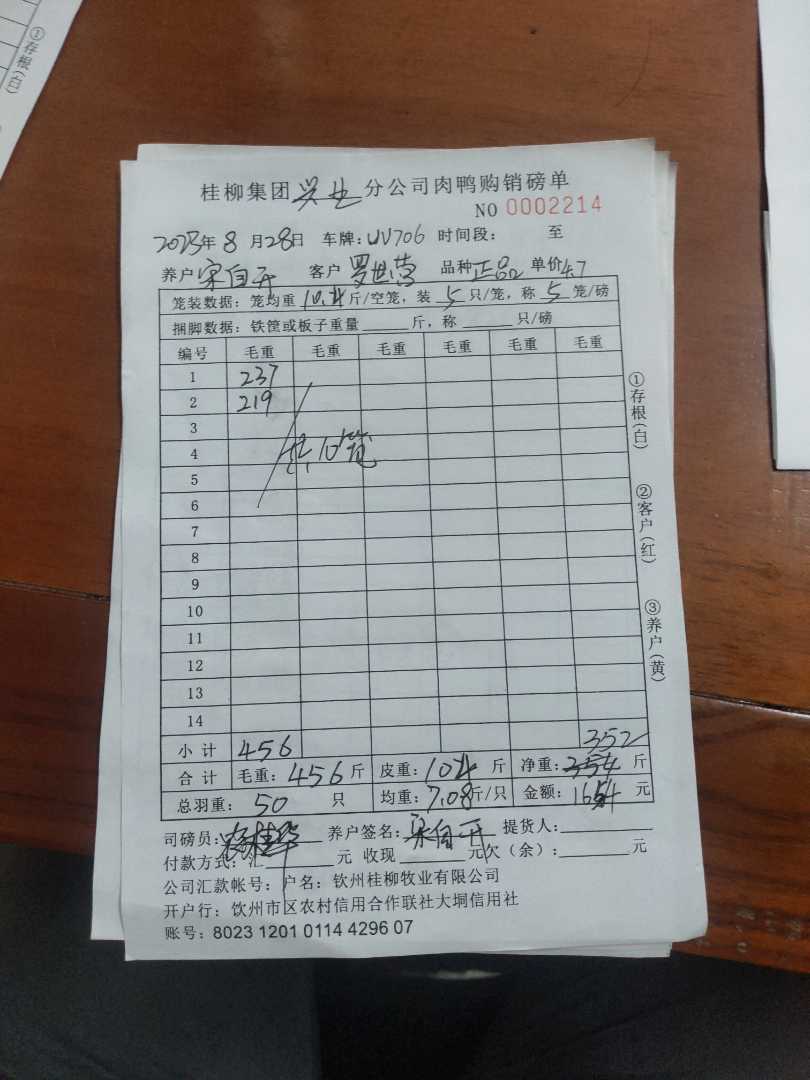 ①存根(白)
桂柳集团兴业分公司肉鸭购销磅单
NO 0002214
2023年8月28日 车牌:UV706 时间段: 至
养户宋自开 客户罗世营 品种正品 单价4.7
笼装数据：笼均重10.4斤/空笼，装5只/笼，称5笼/磅
捆脚数据：铁筐或板子重量 斤，称 只/磅
编号 毛重 毛重 毛重 毛重 毛重 毛重
1 237
2 219
3
4 共10笼
5
6
7
8
9
10
11
12
13
14
小计 456 352
合计 毛重：456斤 皮重：104斤 净重：354斤
总羽重：50只 均重：7.08斤/只 金额：1654元
司磅员: 养户签名：宋自开 提货人：
付款方式：汇 元 收现 元欠（余）： 元
公司汇款帐号：户名：钦州桂柳牧业有限公司
开户行：钦州市区农村信用合作联社大垌信用社
账号：8023 1201 0114 4296 07
①存根(白)
②客户(红)
③养户(黄)